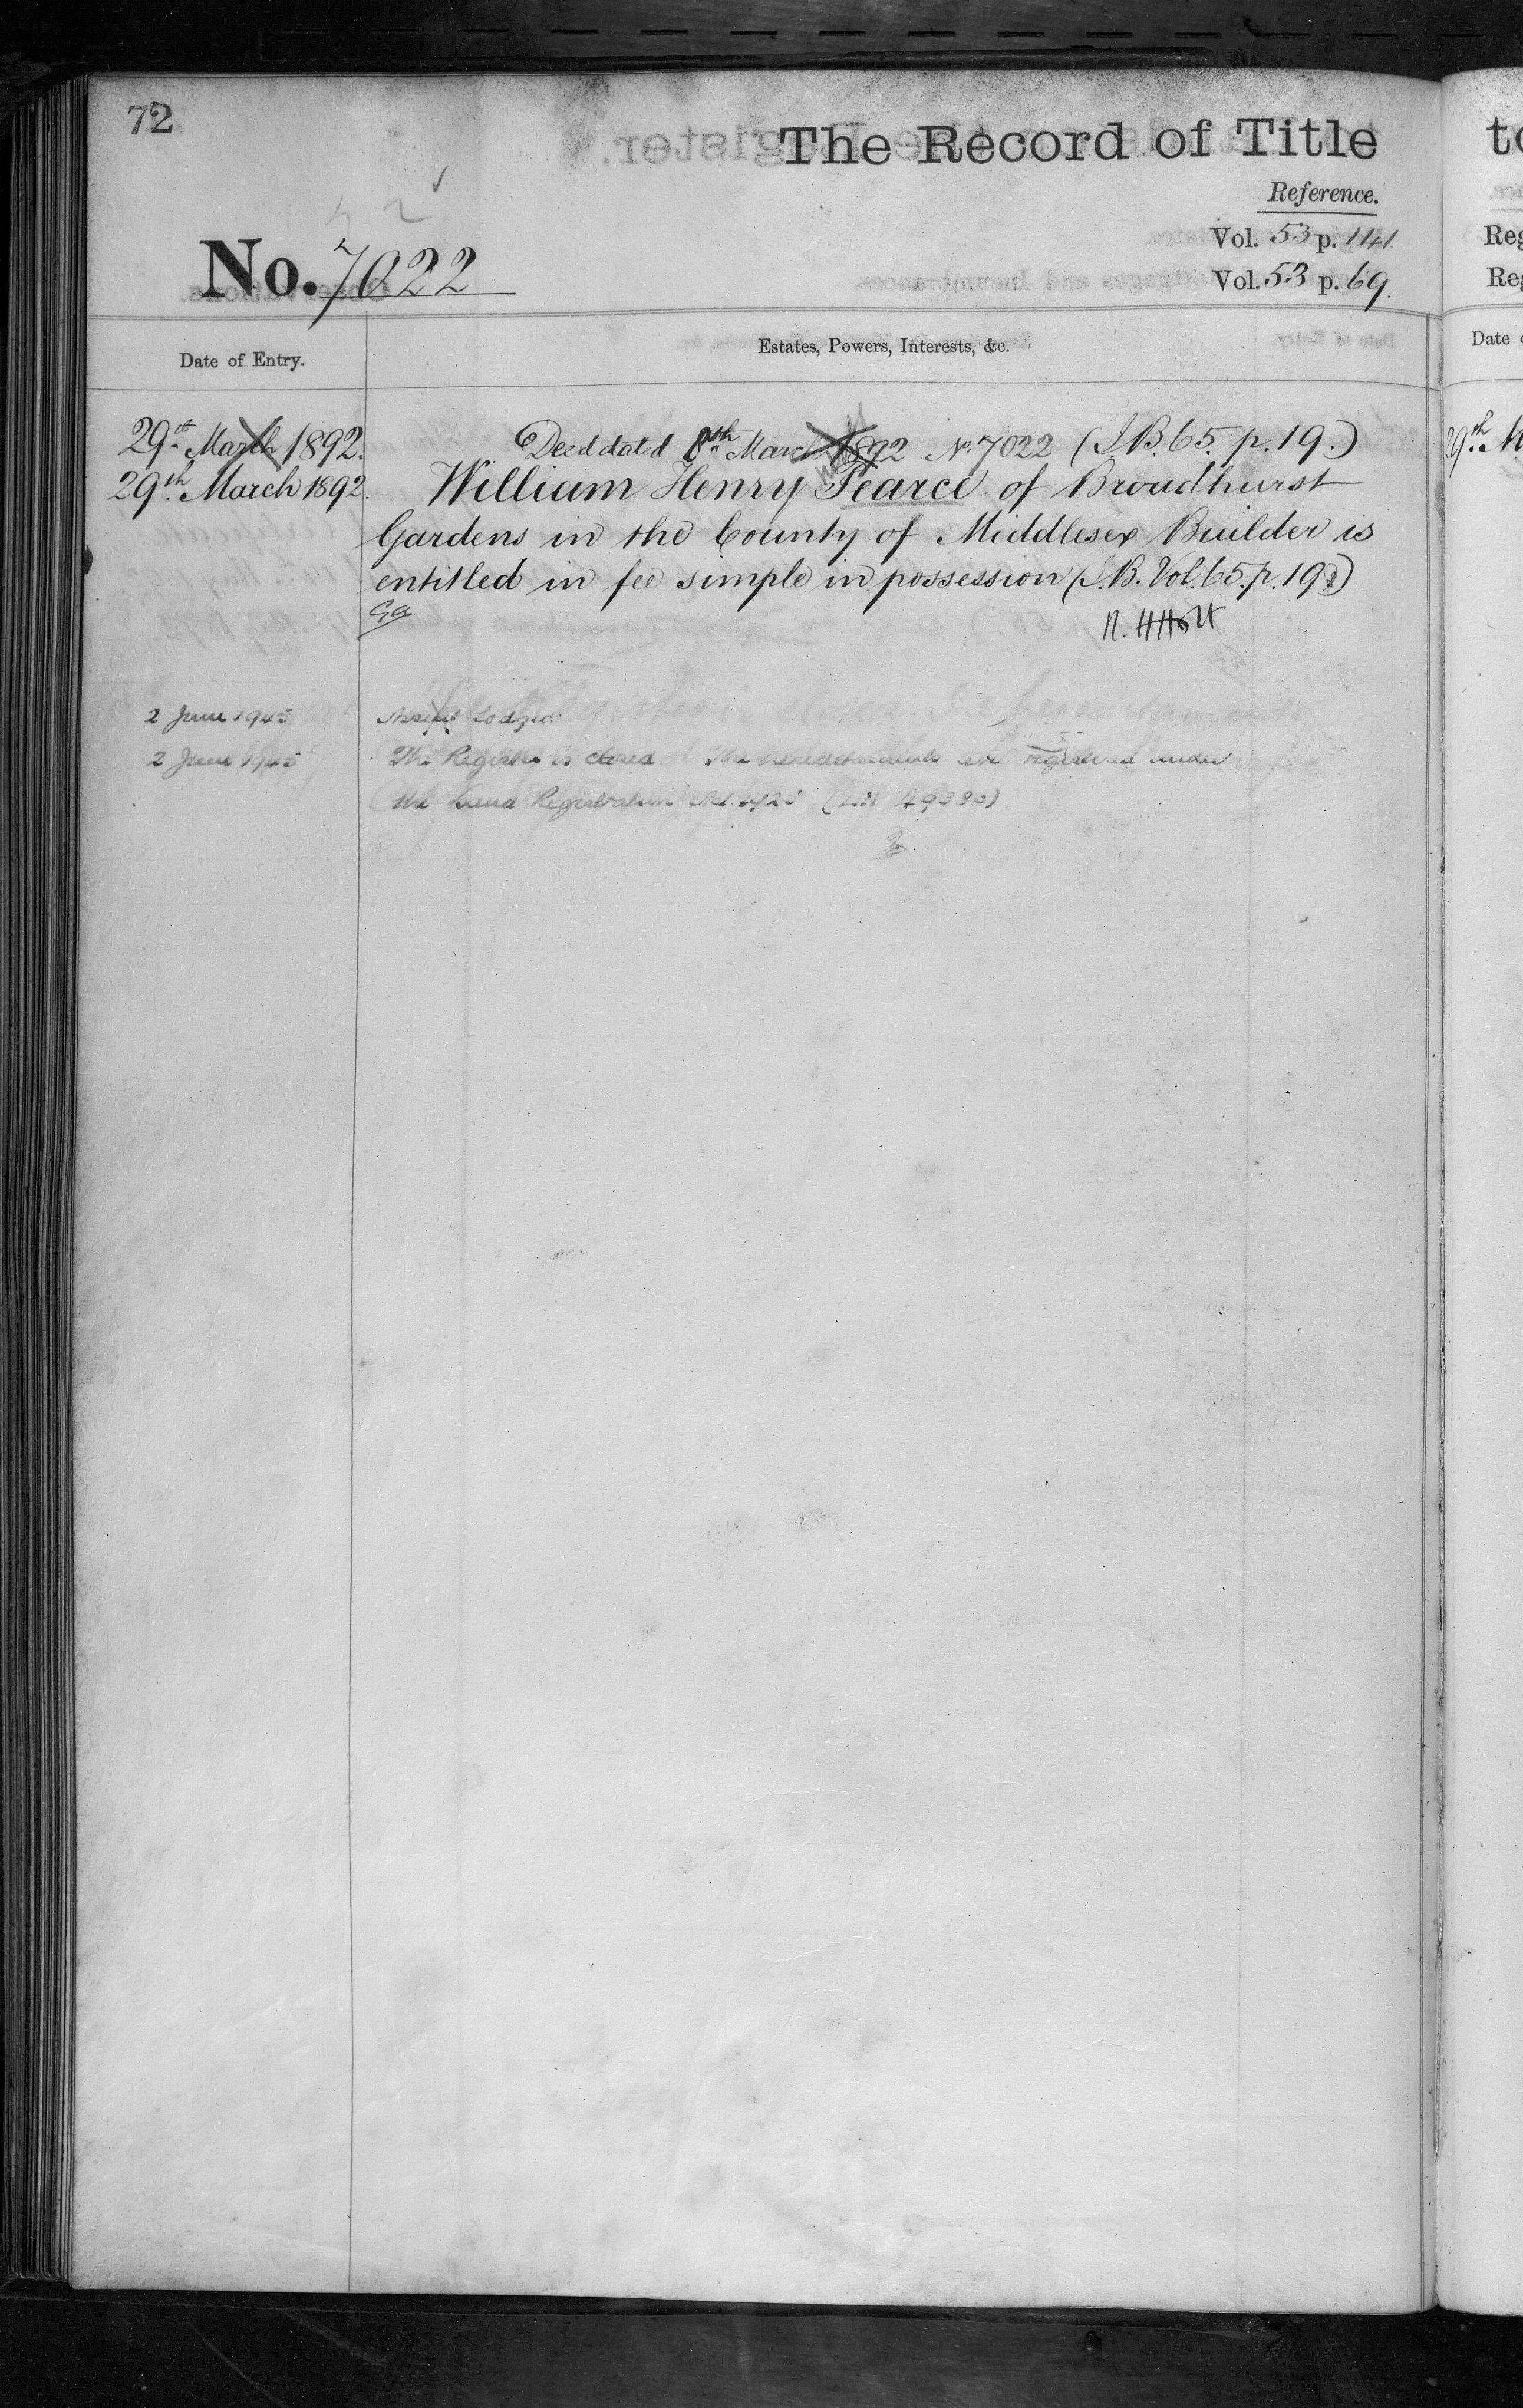 72
The Record of Title
Reference.
Vol. 53 p. 141
Vol. 53 p. 69.
No. 7022
Date of Entry.
Estates, Powers, Interests, &c.
29th March 1892.
Deed dated 8th March 1892 No. 7022 (I.B. 65. p. 19.)
29th March 1892.
William Henry Pearce of Broadhurst
Gardens in the County of Middlesex Builder is
entitled in fee simple in possession (I.B. Vol. 65. p. 19.)
2 June 1945
lodged
2 June 1945
The Register is closed The hereditaments are registered under
the Land Registration Act 1925
to
Reg
Reg
Date
29th M